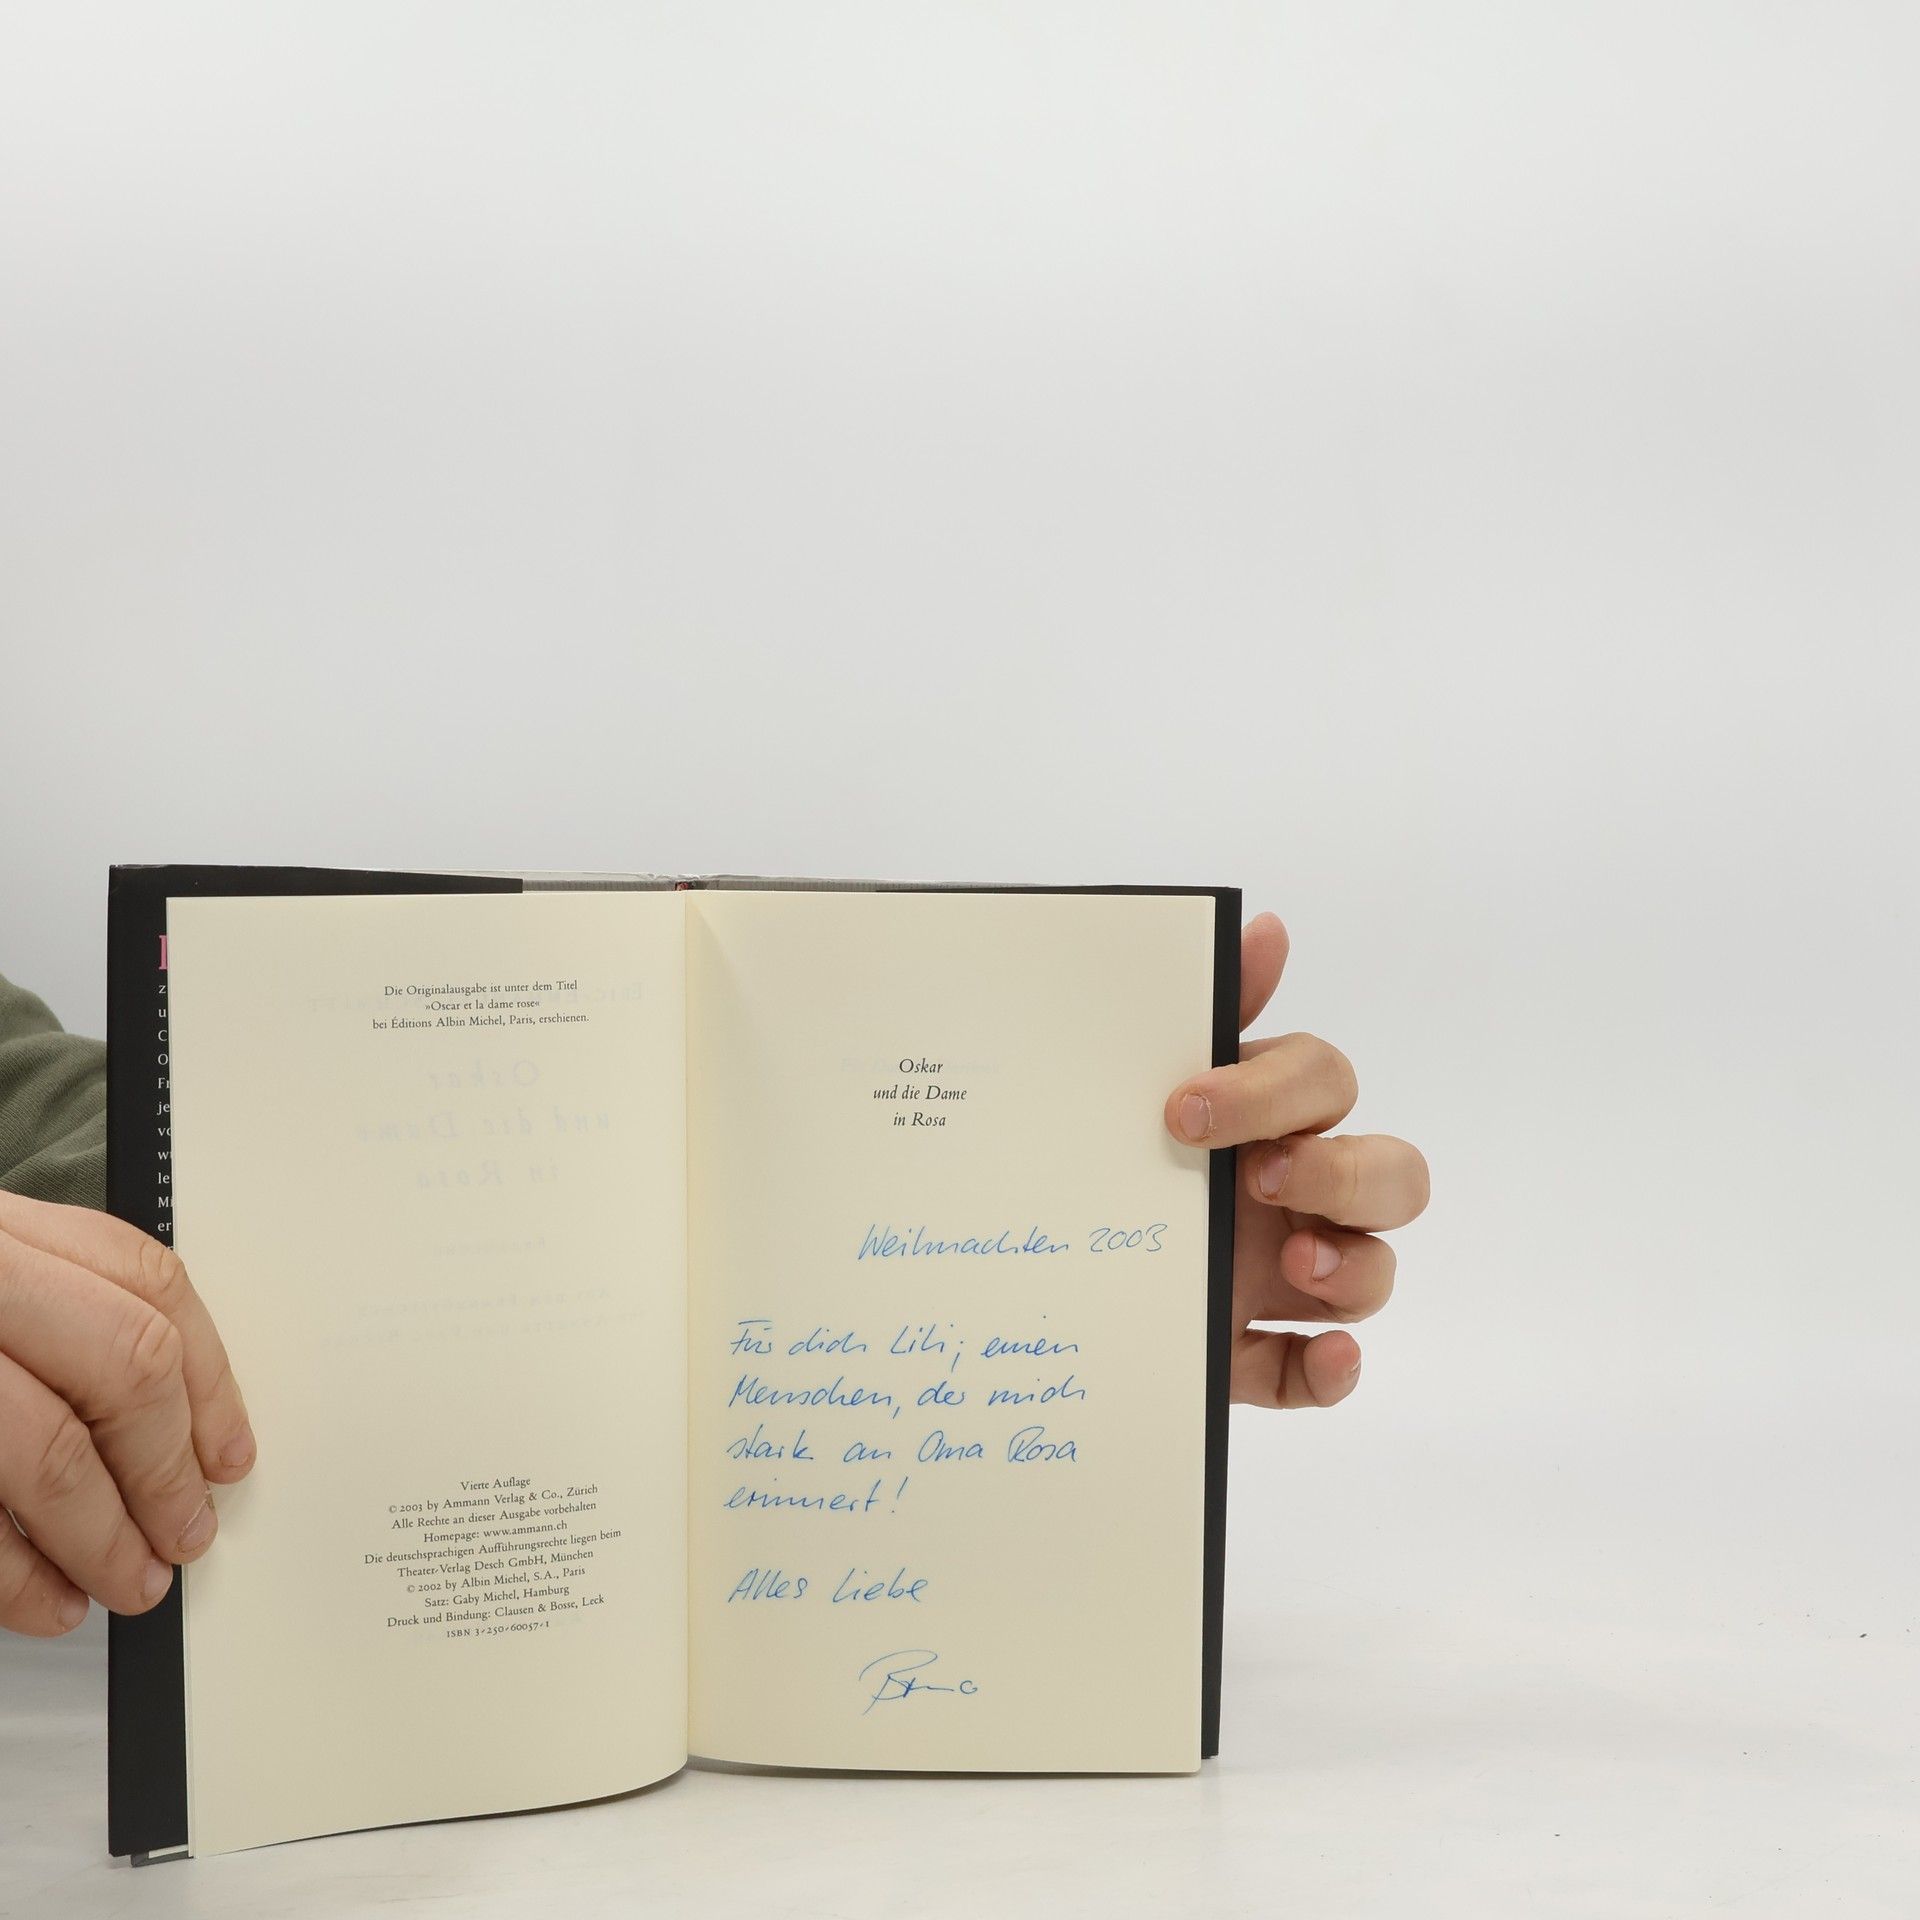 Die Originalausgabe ist unter dem Titel
»Oscar et la dame rose«
bei Éditions Albin Michel, Paris, erschienen.
Vierte Auflage
© 2003 by Ammann Verlag & Co., Zürich
Alle Rechte an dieser Ausgabe vorbehalten
Homepage: www.ammann.ch
Die deutschsprachigen Aufführungsrechte liegen beim
Theater-Verlag Desch GmbH, München
© 2002 by Albin Michel, S.A., Paris
Satz: Gaby Michel, Hamburg
Druck und Bindung: Clausen & Bosse, Leck
ISBN 3-250-60057-1
Oskar
und die Dame
in Rosa
Weihnachten 2003
Für dich Lili; einen
Menschen, der mich
stark an Oma Rosa
erinnert!
Alles Liebe